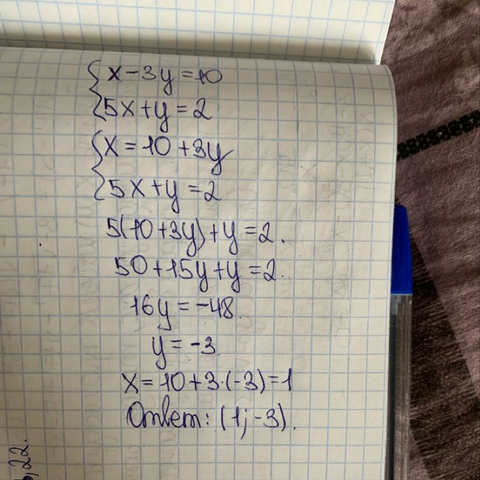 {x-3y=10
{5x+y=2
{x=10+3y
{5x+y=2
5(10+3y)+y=2.
50+15y+y=2.
16y=-48.
y=-3
x=10+3·(-3)=1
Ответ: (1;-3).
22.